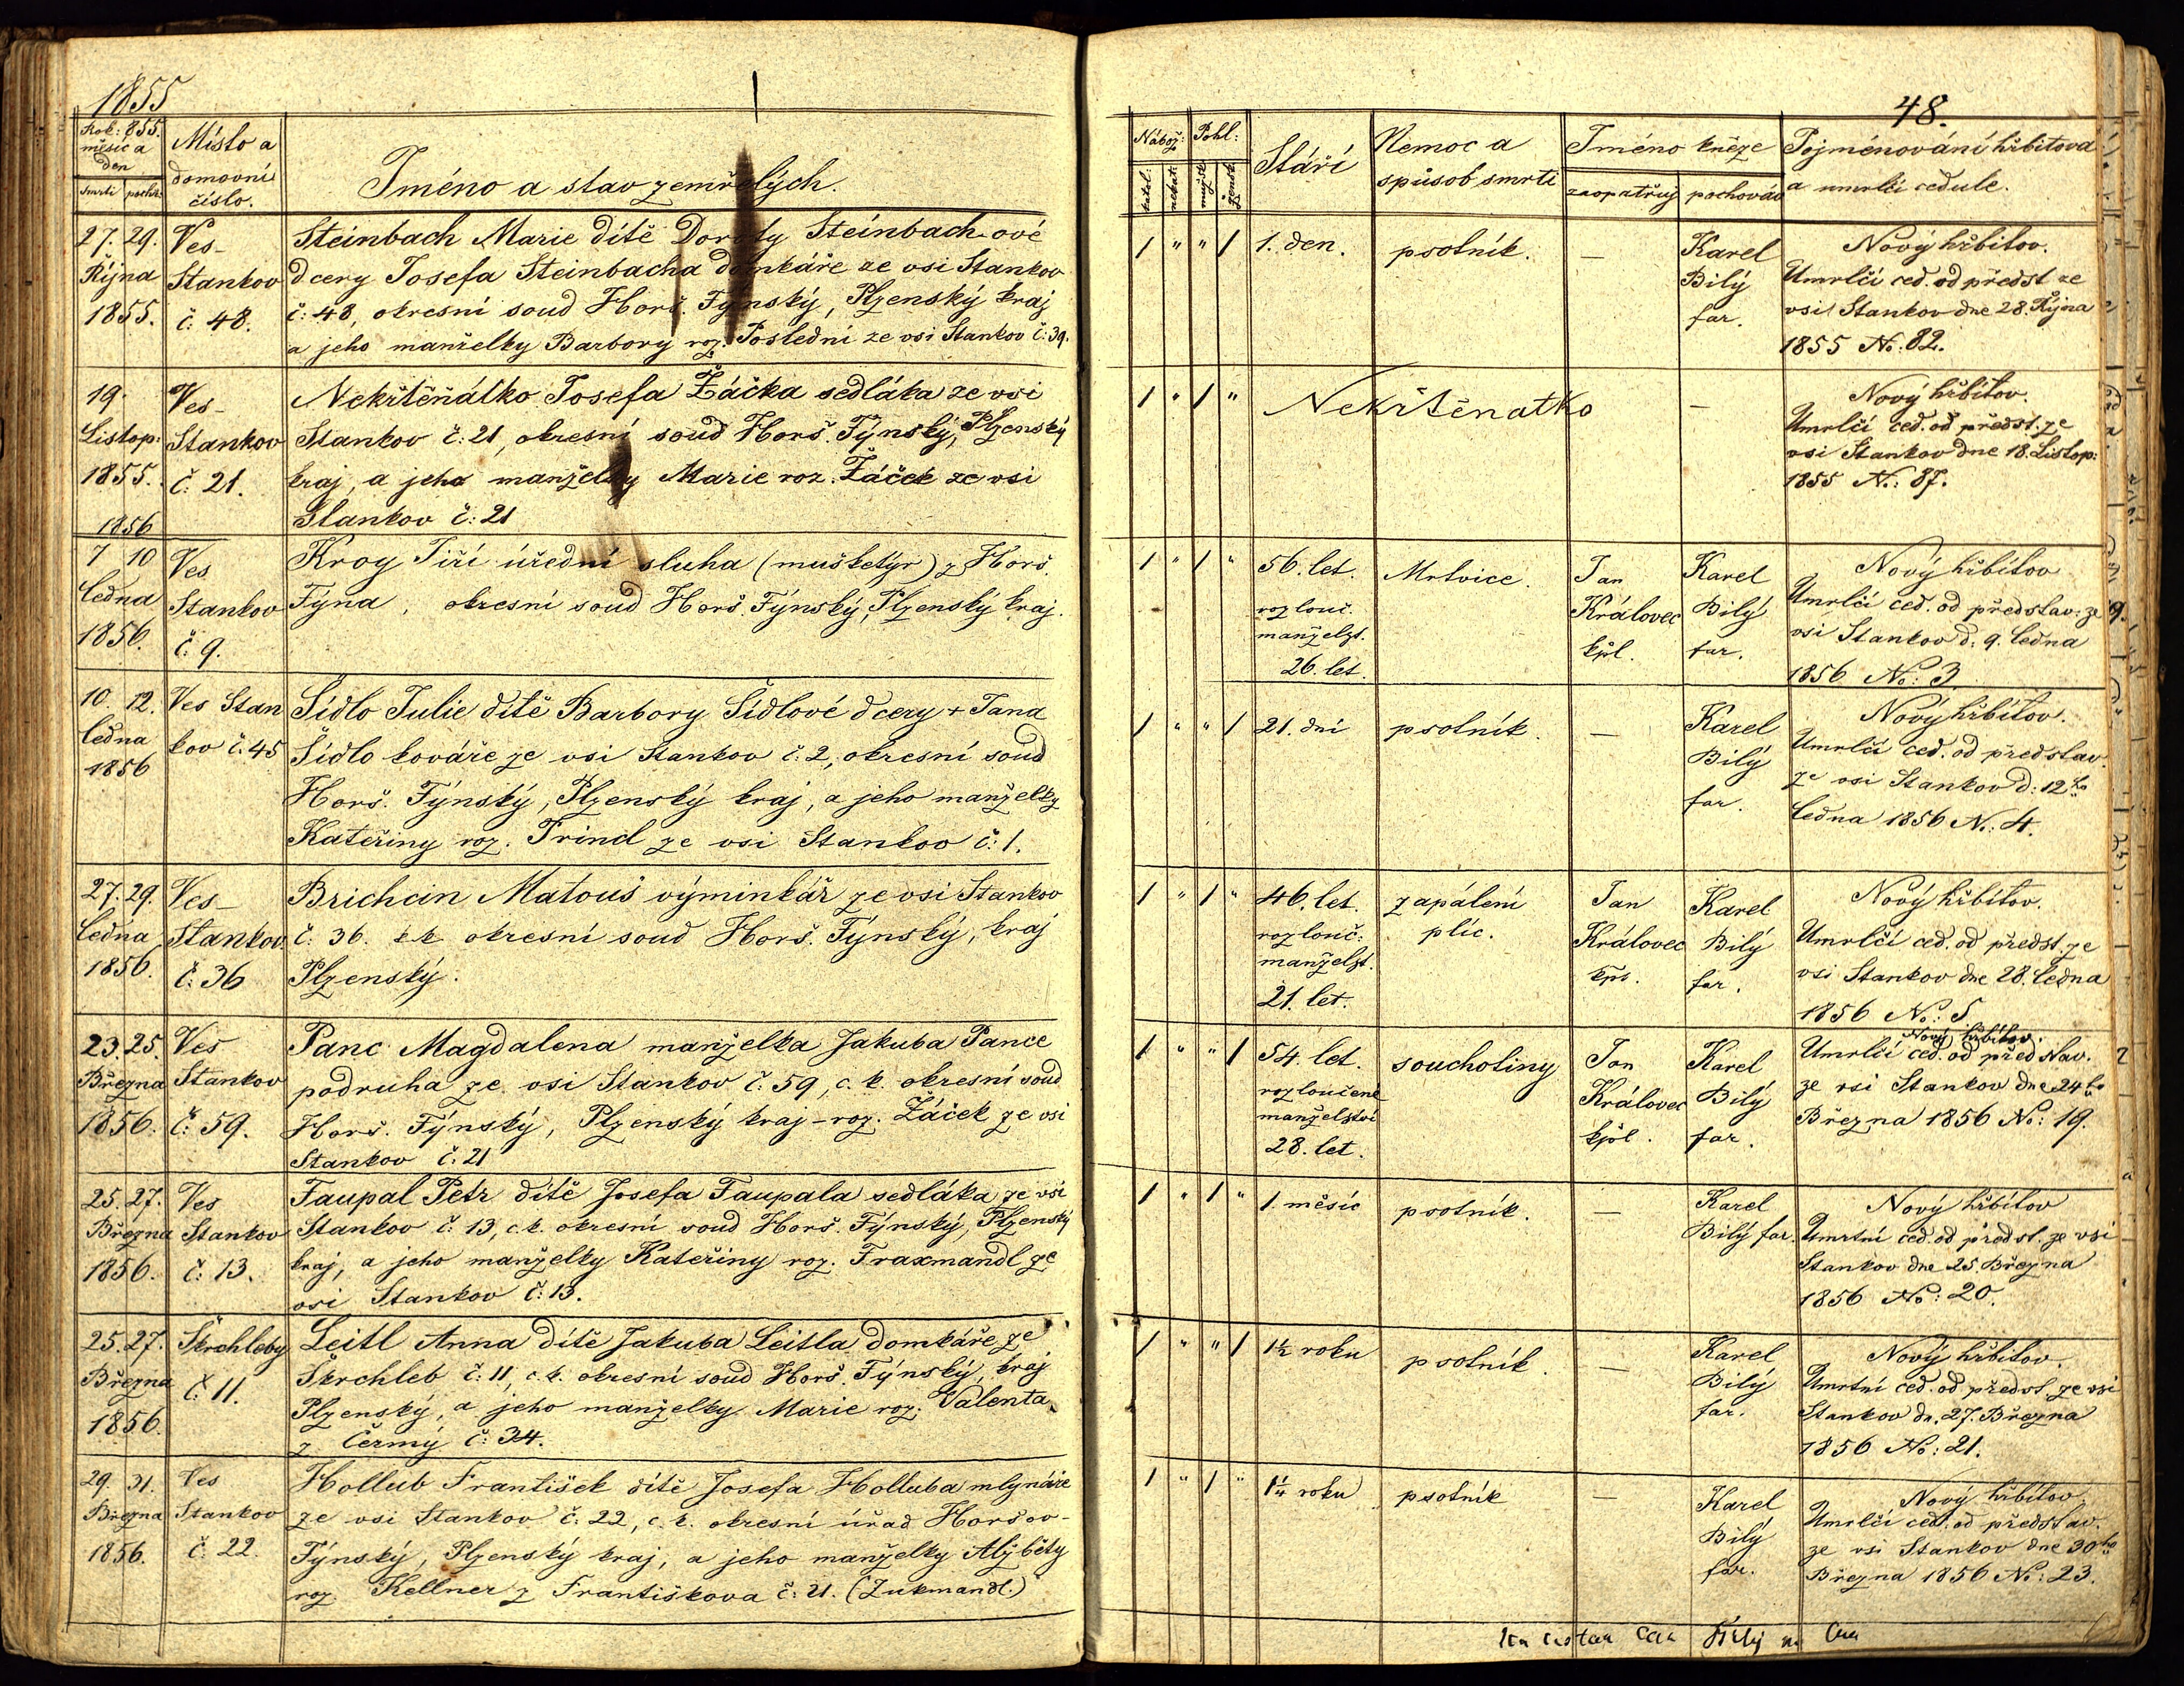 1855
Rok: 855.
měsíc a
den
smrti pochř:
Místo a
domovní
číslo.
Jméno a stav zemřelých.
27. 29.
Října
1855.
Ves
Stankov
č: 48.
Steinbach Marie dítě Doroty Steinbachové
dcery Josefa Steinbacha domkáře ze vsi Stankov
č: 48, okresní soud Horš. Týnský, Plzenský kraj
a jeho manželky Barbory roz. Poslední ze vsi Stankov č: 39.
19.
Listop:
1855.
Ves
Stankov
č: 21.
Nekřtěňátko Josefa Žáčka sedláka ze vsi
Stankov č: 21, okresní soud Horš. Týnský, Plzenský
kraj, a jeho manželky Marie roz. Žáček ze vsi
Stankov č: 21
1856
7 10
ledna
1856.
Ves
Stankov
č: 9.
Kroy Jiří úřední sluha (mušketýr) z Horš.
Týna, okresní soud Horš. Týnský, Plzenský kraj.
10. 12.
ledna
1856
Ves Stan
kov č. 45
Šídlo Julie dítě Barbory Šídlové dcery + Jana
Šídlo kováře ze vsi Stankov č: 2, okresní soud
Horš. Týnský, Plzenský kraj, a jeho manželky
Kateřiny roz. Trindl ze vsi Stankov č: 1.
27. 29.
ledna
1856.
Ves
Stankov
č: 36
Brichcin Matouš výminkář ze vsi Stankov
č: 36. okresní soud Horš. Týnský, kraj
Plzenský.
23. 25.
Března
1856.
Ves
Stankov
č: 59.
Panc Magdalena manželka Jakuba Pance
podruha ze vsi Stankov č: 59, c. k. okresní soud
Horš. Týnský, Plzenský kraj - roz. Žáček ze vsi
Stankov č: 21
25. 27.
Března
1856.
Ves
Stankov
č: 13.
Taupal Petr dítě Josefa Taupala sedláka ze vsi
Stankov č: 13, c. k. okresní soud Horš. Týnský, Plzenský
kraj, a jeho manželky Kateřiny roz. Fraxmandl ze
vsi Stankov č: 13.
25. 27.
Března
1856.
Škrchleby
č: 11.
Leitl Anna dítě Jakuba Leitla domkáře ze
Škrchleb č: 11, c. k. okresní soud Horš. Týnský, kraj
Plzenský, a jeho manželky Marie roz: Valenta
z Čermý č: 34.
29. 31.
Března
1856.
Ves
Stankov
č: 22.
Hollub František dítě Josefa Holluba mlynáře
ze vsi Stankov č: 22, c. k. okresní úřad Horšov-
Týnský, Plzenský kraj, a jeho manželky Alžběty
roz. Kellner z Františkova č: 21. (Zukmandl.)
48.
Nábož:
katol:
nekat:
Pohl:
mužsk
žensk
Stáří
Nemoc a
spůsob smrti
Jméno kněze
zaopatřuj pochováv
Pojménování hřbitova
a umrlčí cedule.
1 " " 1 1. den. psotník. —
Karel
Bílý
far.
Nový hřbitov.
Umrlčí ced. od předst ze
vsi Stankov dne 28. Října
1855 No: 82.
1 " 1 " Nekřtěnatko —
Nový hřbitov.
Umrlčí ced. od předst. ze
vsi Stankov dne 18. Listop:
1855 No: 87.
1 " 1 " 56. let.
rozlouč.
manželst.
26. let.
Mrtvice.
Jan
Královec
kpl.
Karel
Bílý
far.
Nový hřbitov
Umrlčí ced. od představ: ze
vsi Stankov d. 9. ledna
1856 No: 3
1 " " 1 21. dní psotník. —
Karel
Bílý
far.
Nový hřbitov.
Umrlčí ced. od představ.
ze vsi Stankov d: 12ho
ledna 1856 No: 4.
1 " 1 " 46. let.
rozlouč:
manželst.
21. let.
zapálení
plic.
Jan
Královec
kpl.
Karel
Bílý
far.
Nový hřbitov.
Umrlčí ced. od předst. ze
vsi Stankov dne 28. ledna
1856 No: 5
1 " " 1 54. let.
rozloučené
manželství
28. let.
souchotiny
Jan
Královec
kpl.
Karel
Bílý
far.
Nový hřbitov.
Umrlčí ced. od představ.
ze vsi Stankov dne 24ho
Března 1856 No: 19.
1 " 1 " 1 měsíc psotník. —
Karel
Bílý far.
Nový hřbitov
Úmrtní ced. od předst. ze vsi
Stankov dne 25. Března
1856 No: 20.
1 " " 1 1½ roku psotník. —
Karel
Bílý
far.
Nový hřbitov.
Úmrtní ced. od předst. ze vsi
Stankov dn. 27. Března
1856 No: 21.
1 " 1 " 1¼ roku psotník —
Karel
Bílý
far.
Nový hřbitov
Umrlčí ced. od představ.
ze vsi Stankov dne 30ho
Března 1856 No: 23.